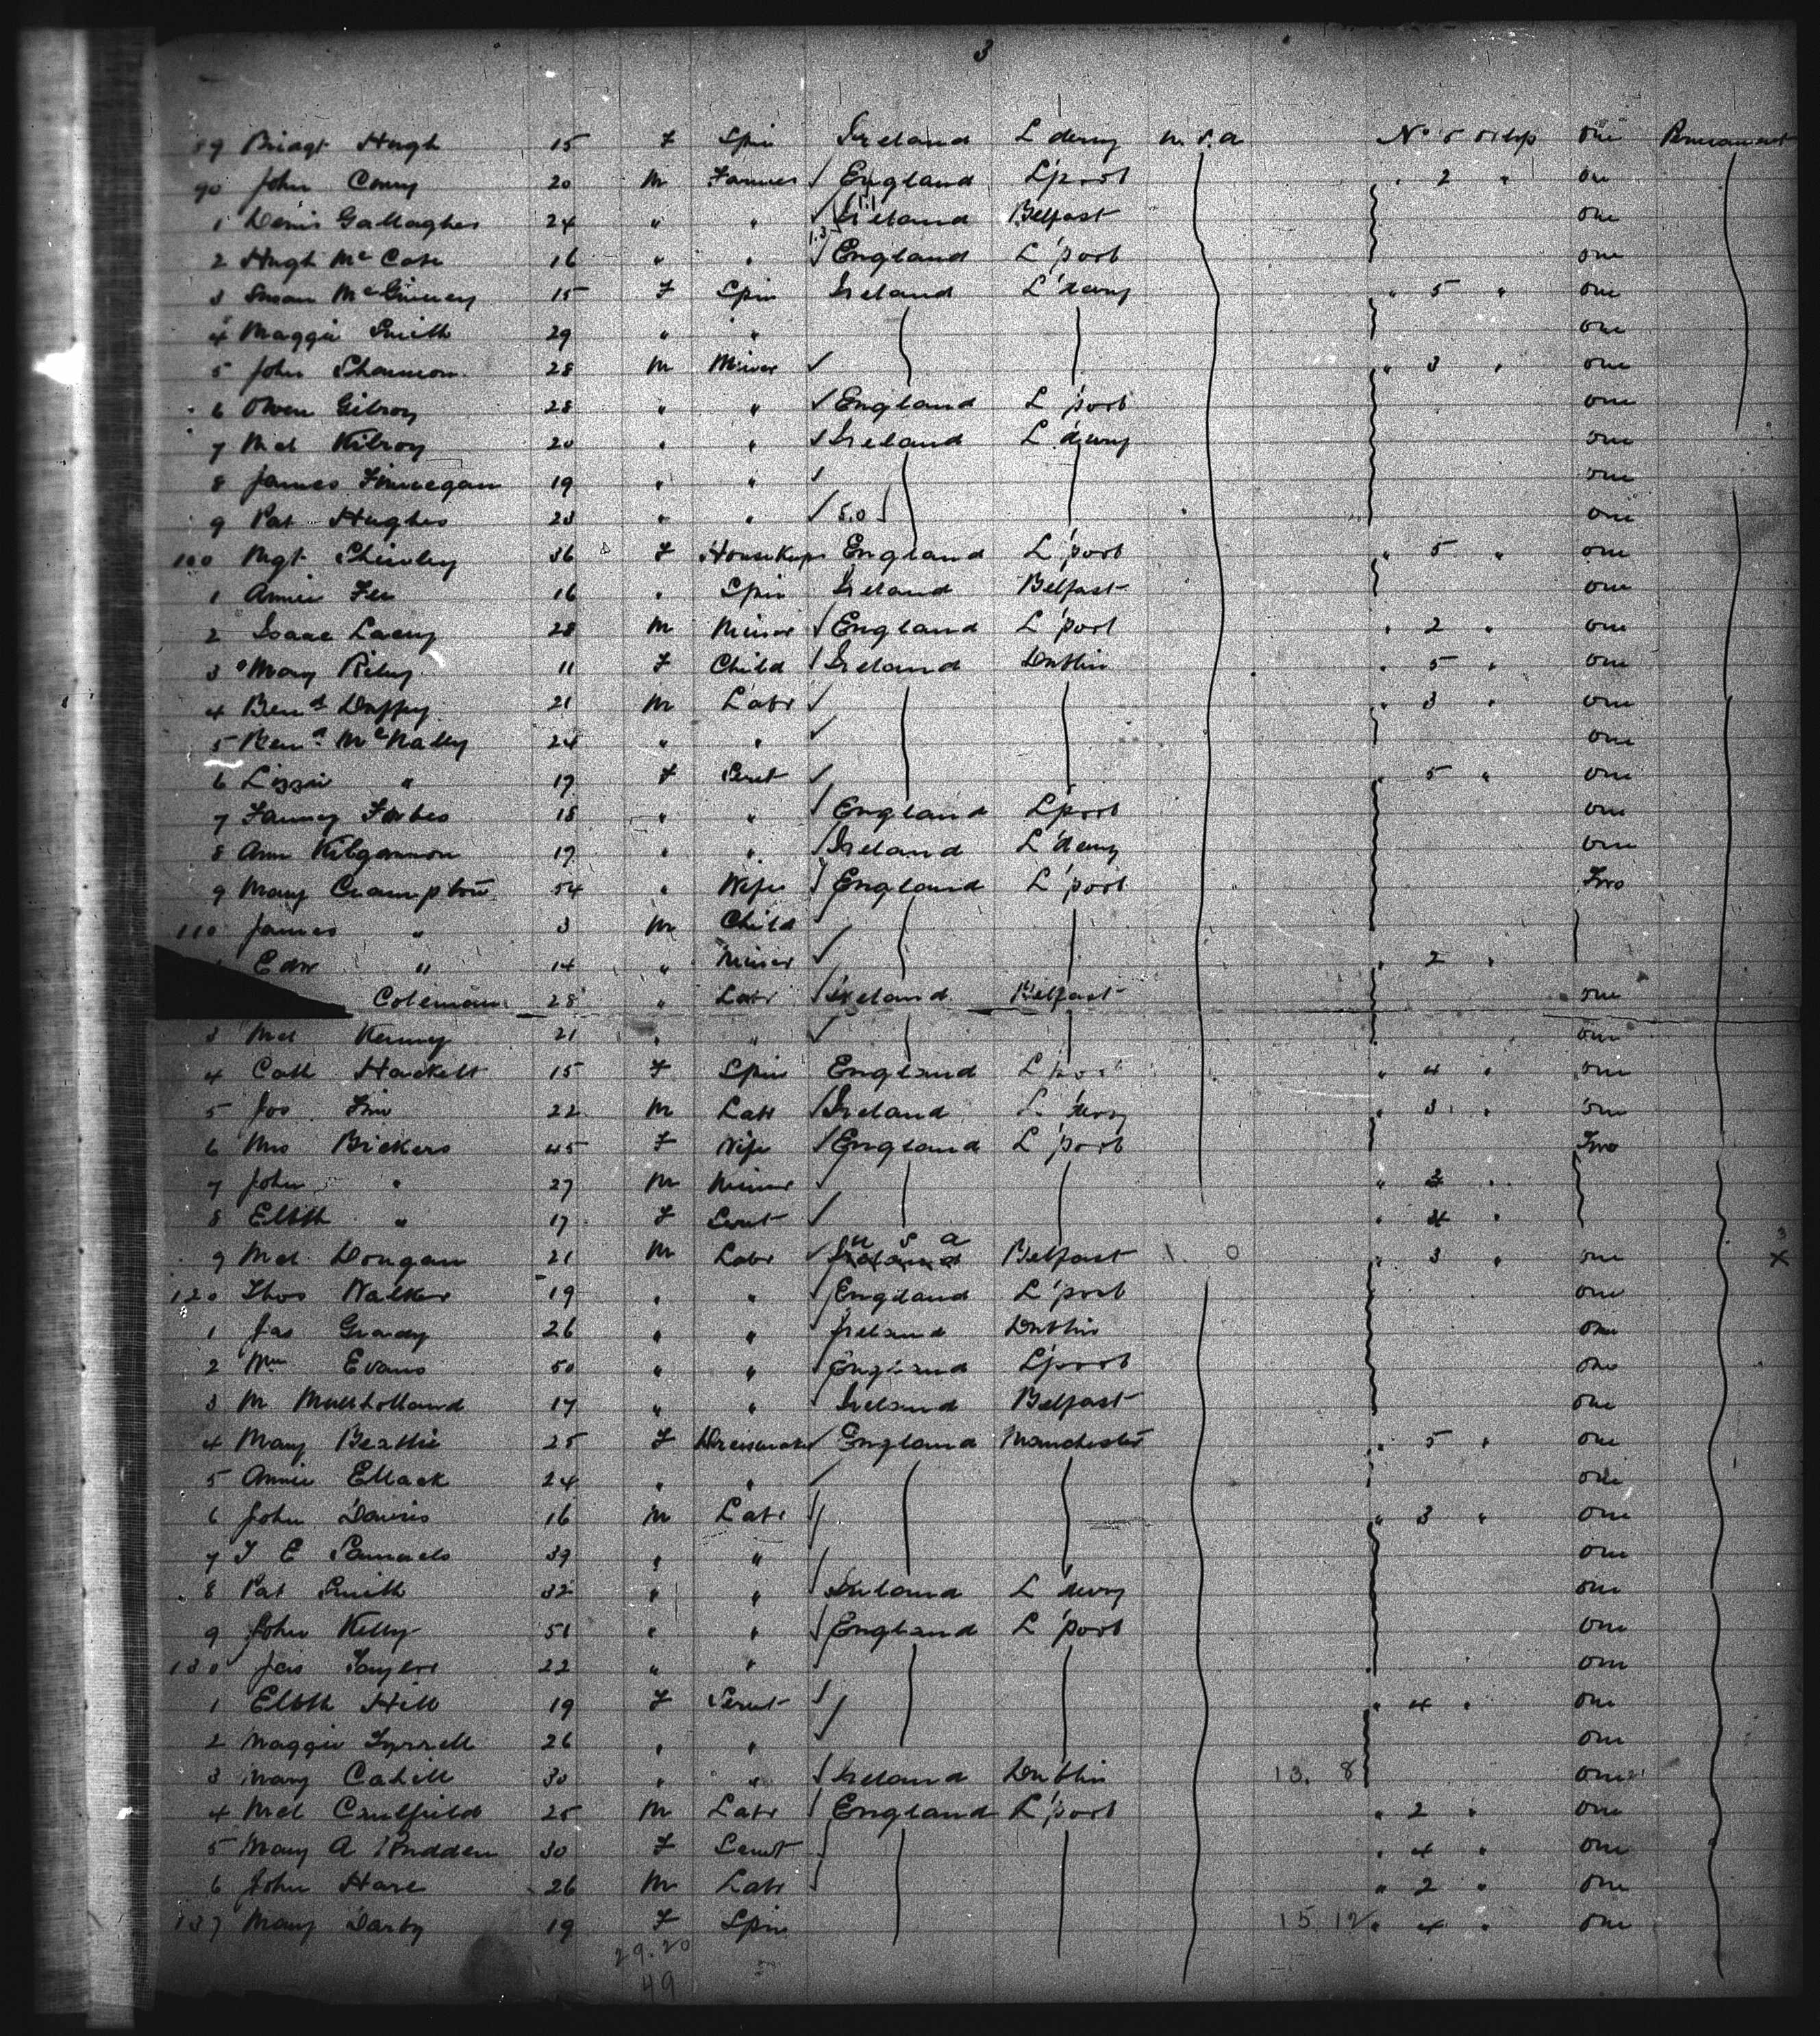 3
89 Bridgt Hugh 15 F Spin Ireland L'derry U.S.A No 5 Disp one Permanent
90 John Conry 20 M Farmer England L'pool " 2 " one
1 Denis Gallagher 24 " " Ireland Belfast one
2 Hugh McCabe 16 " " England L'pool one
3 Susan McGinney 15 F Spin Ireland L'derry " 5 " one
4 Maggie Smith 29 " " one
5 John Shannon 28 M Miner " 3 " one
6 Owen Gilroy 28 " " England L'pool one
7 Mcl Kilroy 20 " " Ireland L'derry one
8 James Finnegan 19 " " one
9 Pat Hughes 23 " " one
100 Mgt 36 F Housekpr England L'pool " 5 " one
1 Annie Fee 16 " Spin Ireland Belfast one
2 Isaac Lacey 28 M Miner England L'pool " 2 " one
3 Mary Riley 11 F Child Ireland Dublin " 5 " one
4 Bernd Duffy 21 M Labr " 3 " one
5 Bernd McNally 24 " " one
6 Lizzie " 17 F Servt " 5 " one
7 Fanney Forbes 18 " " England L'pool one
8 Ann Kilgannon 17 " " Ireland L'derry one
9 Mary Crampton 54 " Wife England L'pool Two
110 James " 3 M Child
Edw " 14 " Miner " 2 "
Coleman 28 " Labr Ireland Belfast one
3 Mcl Kenny 21 " " one
4 Cath Hackett 15 F Spin England L'pool " 4 " one
5 Jos Finn 22 M Labr Ireland L'derry " 3 " one
6 Mrs Bickers 45 F Wife England L'pool Two
7 John " 27 M Miner " 2 "
8 Elbth " 17 F Servt " 4 "
9 Mcl Dongan 21 M Labr U S A Belfast " 3 " one X
120 Thos Walker 19 " " England L'pool one
1 Jas Grady 26 " " Ireland Dublin one
2 Wm Evans 50 " " England L'pool one
3 M Mullholland 17 " " Ireland Belfast one
4 Mary Beattie 25 F Dressmaker England Manchester " 5 " one
5 Annie Ellack 24 " " one
6 John Davies 16 M Labr " 3 " one
7 T E Samuels 39 " " one
8 Pat Smith 32 " " Ireland L'derry one
9 John Kelly 51 " " England L'pool one
130 Jas Taylor 22 " " one
1 Elbth Hill 19 F Servt " 4 " one
2 Maggie Tyrrell 26 " " one
3 Mary Cahill 30 " " Ireland Dublin 13. 8 one
4 Mcl Caulfield 25 M Labr England L'pool " 2 " one
5 Mary A Prudden 30 F Servt " 4 " one
6 John Hare 26 M Labr " 2 " one
137 Mary Darby 19 F Spin 15 12 " 4 " one
29.20
49